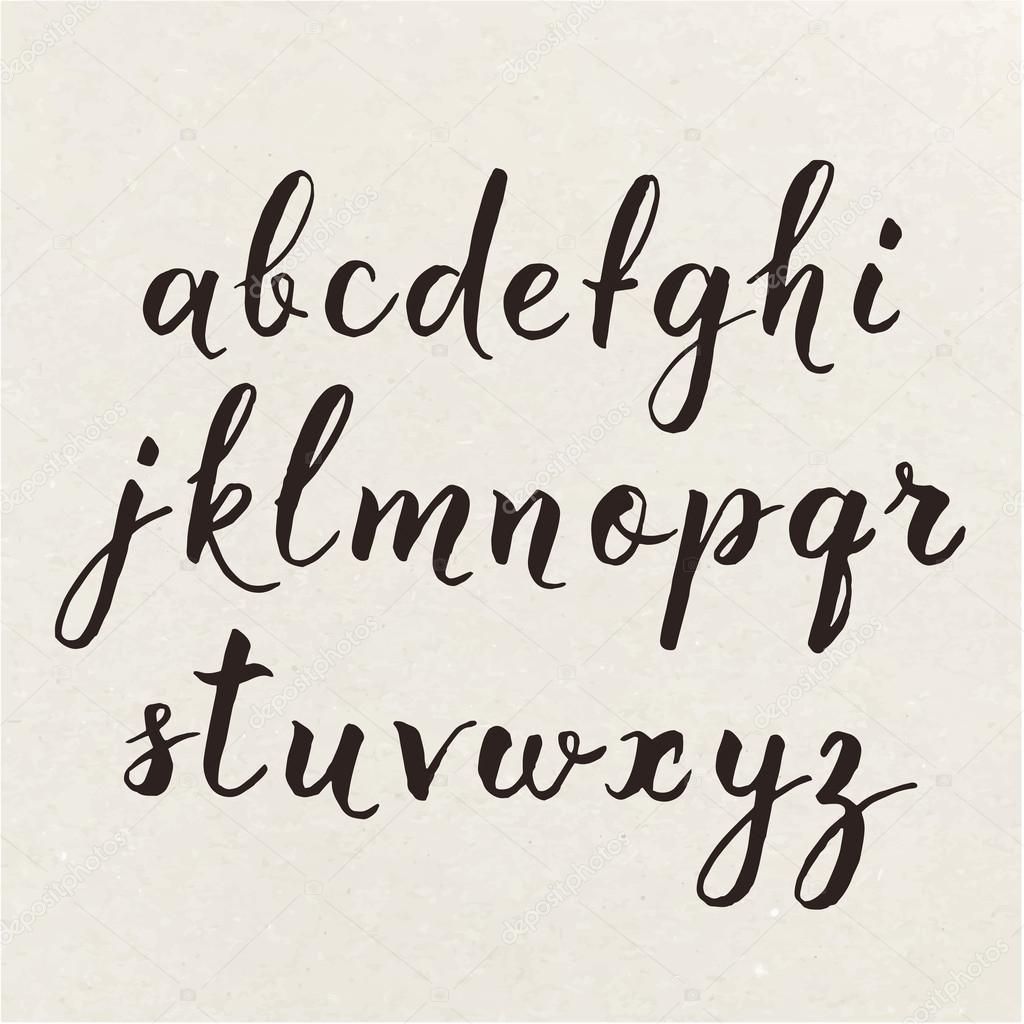 abcdefghi
jklmnopqr
stuvwxyz
depositphotos